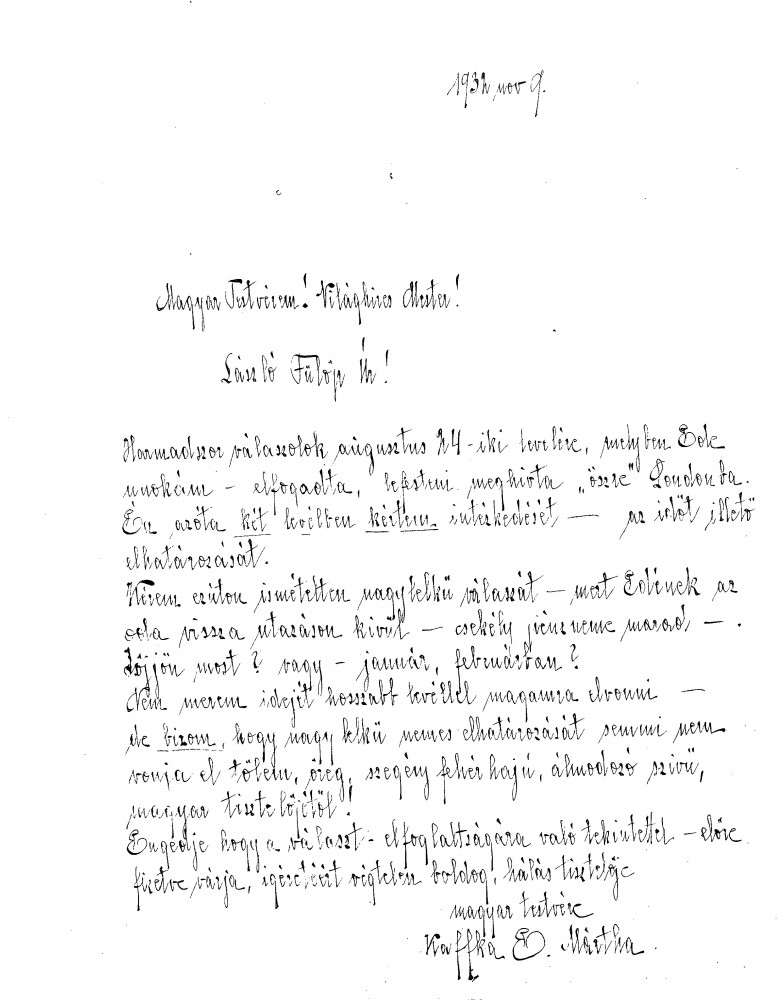 1932 nov 9.
Magyar Testvérem! Világhires Mester!
László Fülöp Úr!
Harmadszor válaszolok augusztus 24-iki levelére, melyben Ede
unokám – elfogadta, lefesteni meghivta „őszre" Londonba.
Én azóta két levélben kértem intézkedését — az időt illető
elhatározását.
Kérem ezúton ismételten nagylelkü válaszát – mert Edének az
oda vissza utazáson kivül – csekély pénzneme marad – .
Jőjjön most? vagy – január, februárban?
Nem merem idejét hosszabb levéllel magamra elvonni —
de bizom, hogy nagylelkü nemes elhatározását semmi nem
vonja el tőlem, öreg, szegény fehér hajú, álmodozó szivü,
magyar tisztelőjétől!
Engedje hogy a választ – elfoglaltságára való tekintettel – előre
fizetve várja, igéretéért végtelen boldog, hálás tisztelője
magyar testvére
Kaffka E. Mártha.